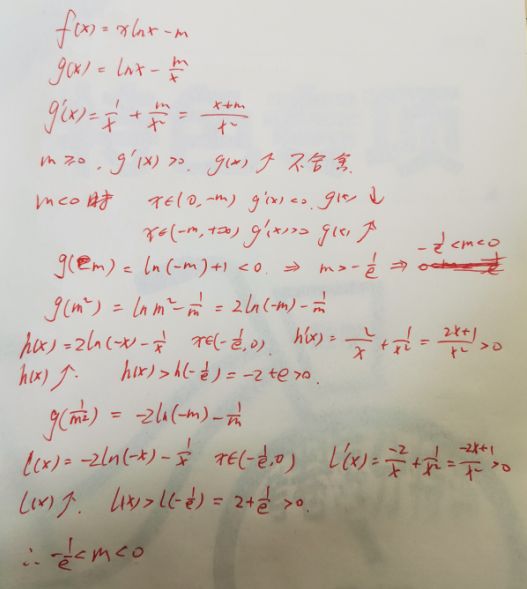 f(x) = xlnx - m
g(x) = lnx - m/x
g'(x) = 1/x + m/x² = (x+m)/x²
m≥0, g'(x)>0, g(x)↑ 不合舍.
m<0时 x∈(0,-m) g'(x)<0, g(x)↓
x∈(-m,+∞) g'(x)>0 g(x)↑
g(-m) = ln(-m)+1 <0. ⇒ m>-1/e ⇒ -1/e<m<0
g(m²) = lnm² - 1/m = 2ln(-m) - 1/m
h(x) = 2ln(-x) - 1/x x∈(-1/e,0). h'(x) = 2/x + 1/x² = (2x+1)/x² >0
h(x)↑. h(x)>h(-1/e) = -2+e>0.
g(1/m²) = -2ln(-m) - 1/m
l(x) = -2ln(-x) - 1/x x∈(-1/e,0) l'(x) = -2/x + 1/x² = (-2x+1)/x² >0
l(x)↑. l(x)>l(-1/e) = 2+1/e >0.
∴ -1/e<m<0